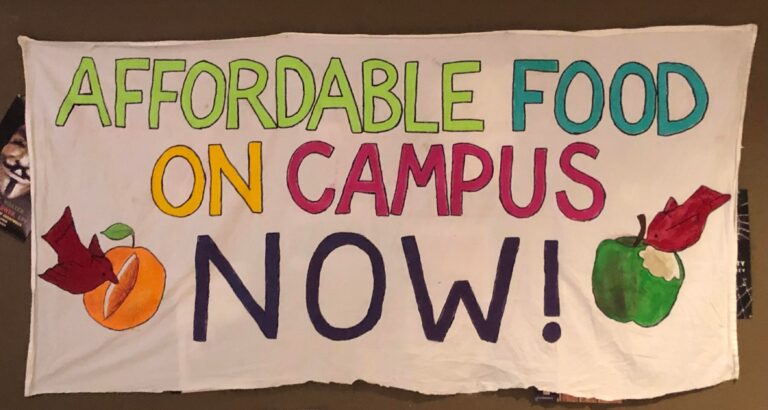 AFFORDABLE FOOD
ON CAMPUS
NOW!